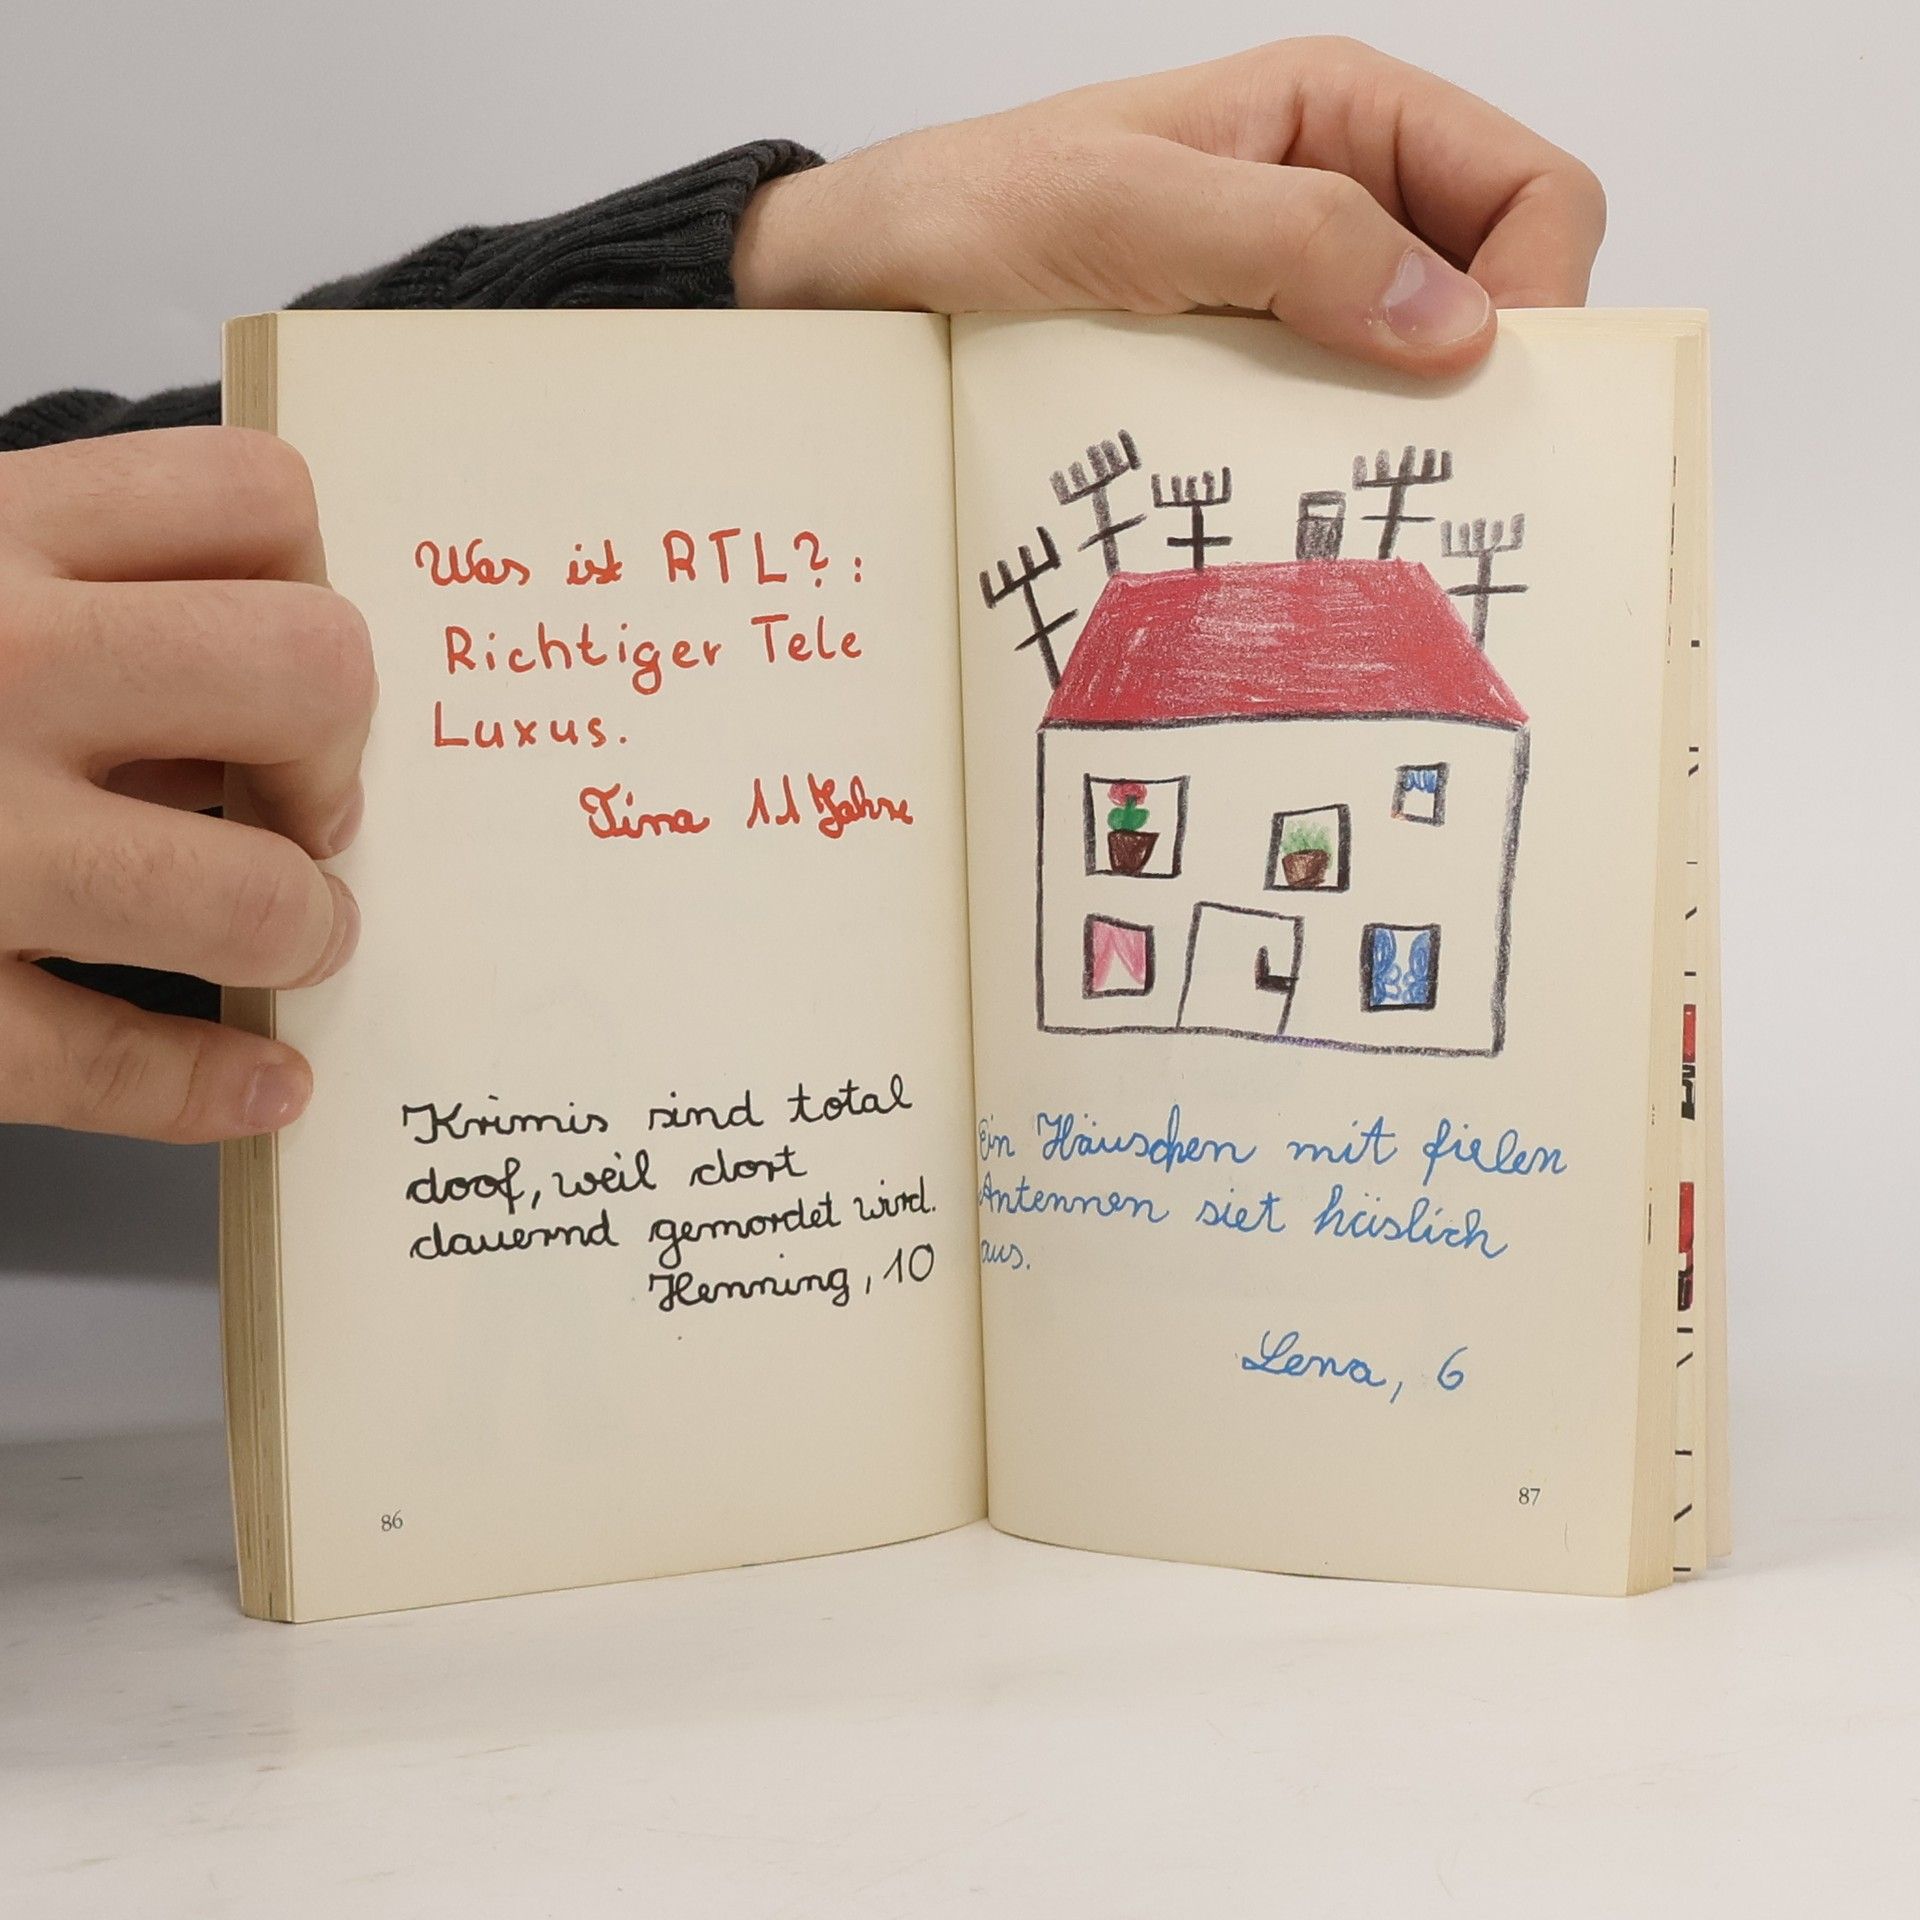 Was ist RTL?:
Richtiger Tele
Luxus.
Tina 11 Jahre
Krimis sind total
doof, weil dort
dauernd gemordet wird.
Henning, 10
86
Ein Häuschen mit fielen
Antennen siet häslich
aus.
Lena, 6
87